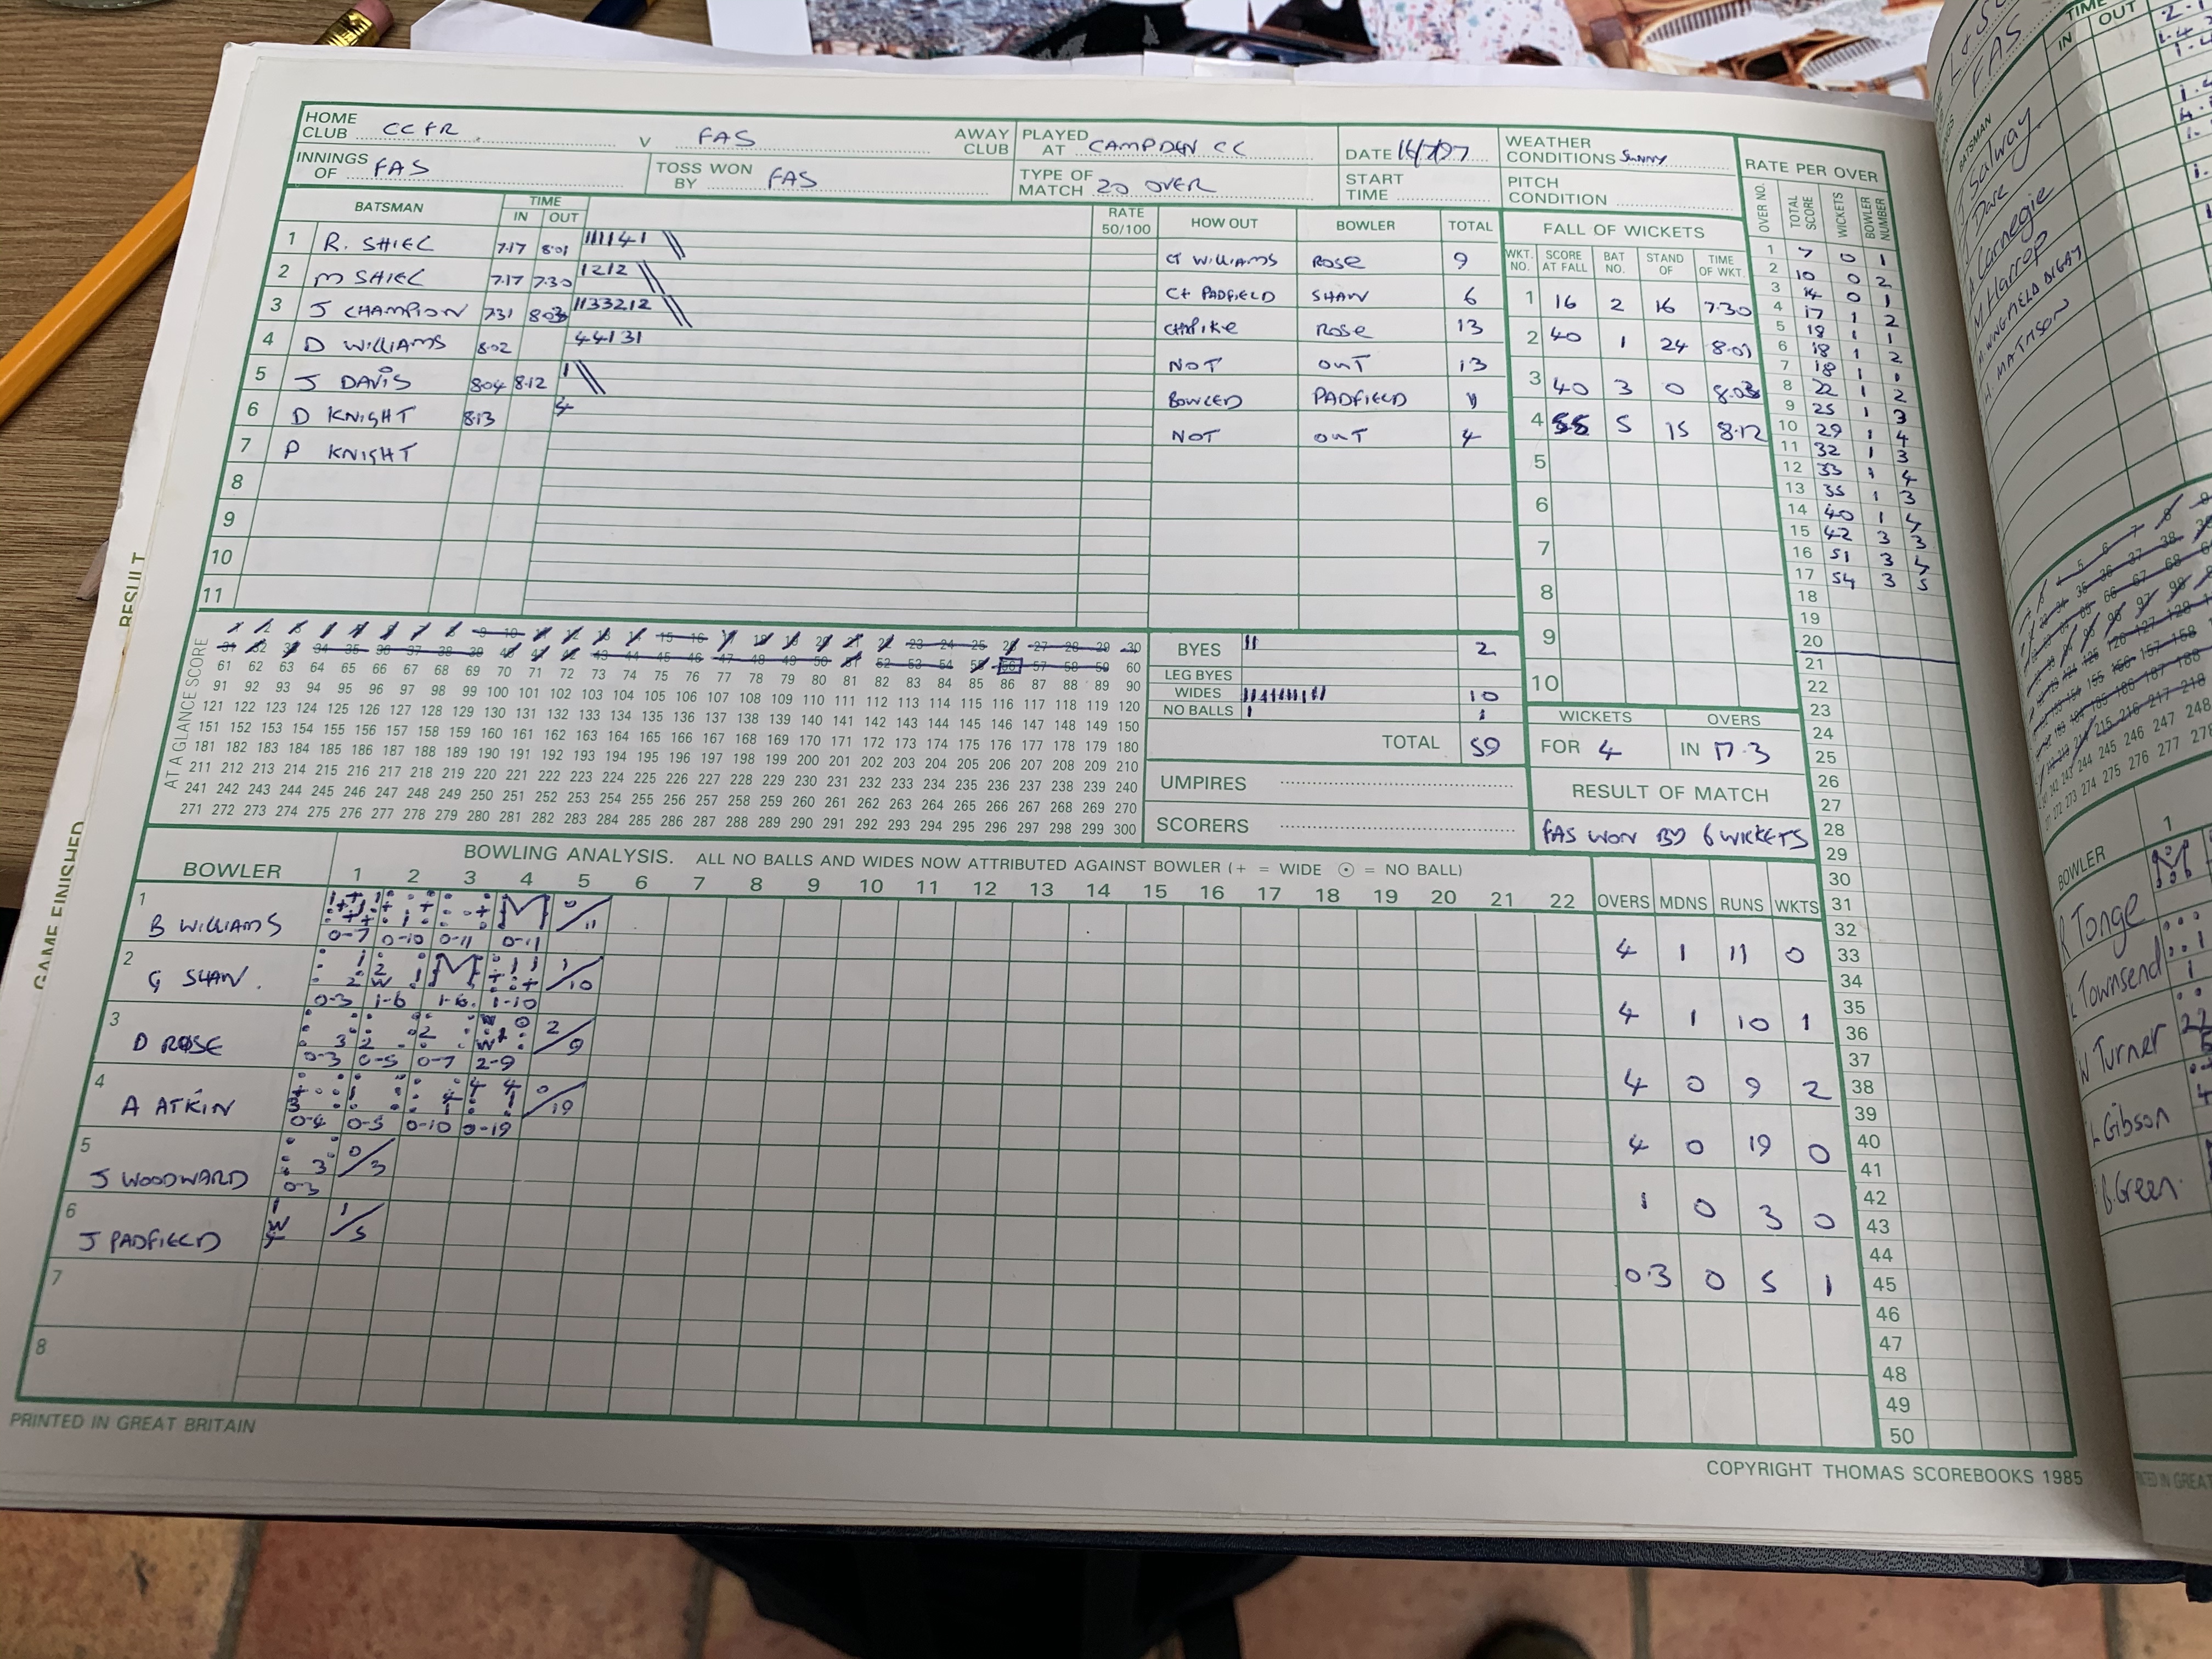 HOME CLUB CCFR V FAS AWAY CLUB PLAYED AT CAMPDEN CC DATE WEATHER CONDITIONS SUNNY
INNINGS OF FAS TOSS WON BY FAS TYPE OF MATCH 20 OVER START TIME PITCH CONDITION
BATSMAN TIME IN OUT RATE 50/100 HOW OUT BOWLER TOTAL
1 R. SHIEL 7.17 8.01 111141 CT WILLIAMS ROSE 9
2 M SHIEL 7.17 7.30 1212 CT PADFIELD SHAW 6
3 J CHAMPION 7.31 8.03 1133212 CT PIKE ROSE 13
4 D WILLIAMS 8.02 44131 NOT OUT 13
5 J DAVIS 8.04 8.12 1 BOWLED PADFIELD 1
6 D KNIGHT 8.13 4 NOT OUT 4
7 P KNIGHT
8
9
10
11
FALL OF WICKETS
WKT. NO. SCORE AT FALL BAT NO. STAND OF TIME OF WKT.
1 16 2 16 7.30
2 40 1 24 8.01
3 40 3 0 8.03
4 55 5 15 8.12
5
6
7
8
9
10
RATE PER OVER
OVER NO. TOTAL SCORE WICKETS BOWLER NUMBER
1 7 0 1
2 10 0 2
3 14 0 1
4 17 1 2
5 18 1 1
6 18 1 2
7 18 1 1
8 22 1 2
9 25 1 3
10 29 1 4
11 32 1 3
12 33 1 4
13 35 1 3
14 40 1 4
15 42 3 3
16 51 3 4
17 54 3 5
18
19
20
21
22
23
24
25
26
27
28
29
30
31
32
33
34
35
36
37
38
39
40
41
42
43
44
45
46
47
48
49
50
AT A GLANCE SCORE
1 2 3 4 5 6 7 8 9 10 11 12 13 14 15 16 17 18 19 20 21 22 23 24 25 26 27 28 29 30
31 32 33 34 35 36 37 38 39 40 41 42 43 44 45 46 47 48 49 50 51 52 53 54 55 56 57 58 59 60
61 62 63 64 65 66 67 68 69 70 71 72 73 74 75 76 77 78 79 80 81 82 83 84 85 86 87 88 89 90
91 92 93 94 95 96 97 98 99 100 101 102 103 104 105 106 107 108 109 110 111 112 113 114 115 116 117 118 119 120
121 122 123 124 125 126 127 128 129 130 131 132 133 134 135 136 137 138 139 140 141 142 143 144 145 146 147 148 149 150
151 152 153 154 155 156 157 158 159 160 161 162 163 164 165 166 167 168 169 170 171 172 173 174 175 176 177 178 179 180
181 182 183 184 185 186 187 188 189 190 191 192 193 194 195 196 197 198 199 200 201 202 203 204 205 206 207 208 209 210
211 212 213 214 215 216 217 218 219 220 221 222 223 224 225 226 227 228 229 230 231 232 233 234 235 236 237 238 239 240
241 242 243 244 245 246 247 248 249 250 251 252 253 254 255 256 257 258 259 260 261 262 263 264 265 266 267 268 269 270
271 272 273 274 275 276 277 278 279 280 281 282 283 284 285 286 287 288 289 290 291 292 293 294 295 296 297 298 299 300
BYES 2
LEG BYES
WIDES 10
NO BALLS 1
TOTAL 59
UMPIRES
SCORERS
WICKETS OVERS
FOR 4 IN 17.3
RESULT OF MATCH
FAS WON BY 6 WICKETS
BOWLING ANALYSIS. ALL NO BALLS AND WIDES NOW ATTRIBUTED AGAINST BOWLER (+ = WIDE ⊙ = NO BALL)
BOWLER 1 2 3 4 5 6 7 8 9 10 11 12 13 14 15 16 17 18 19 20 21 22 OVERS MDNS RUNS WKTS
1 B WILLIAMS 0-7 0-10 0-11 M 0-11 0/11 4 1 11 0
2 G SHAW. 0-3 1-6 M 1-6. 1-10 1/10 4 1 10 1
3 D ROSE 0-3 0-5 0-7 2-9 2/9 4 0 9 2
4 A ATKIN 0-4 0-5 0-10 0-19 0/19 4 0 19 0
5 J WOODWARD 0-3 0/3 1 0 3 0
6 J PADFIELD 1 W 4 1/5 0.3 0 5 1
7
8
PRINTED IN GREAT BRITAIN
COPYRIGHT THOMAS SCOREBOOKS 1985
RESULT
GAME FINISHED
FAS
TIME
IN OUT
BATSMAN
J Salway
Dare
A Carnegie
M Harrop
WINGFIELD DIGBY
MATHSON
BOWLER
R Tonge
Townsend
W Turner
L Gibson
B. Green